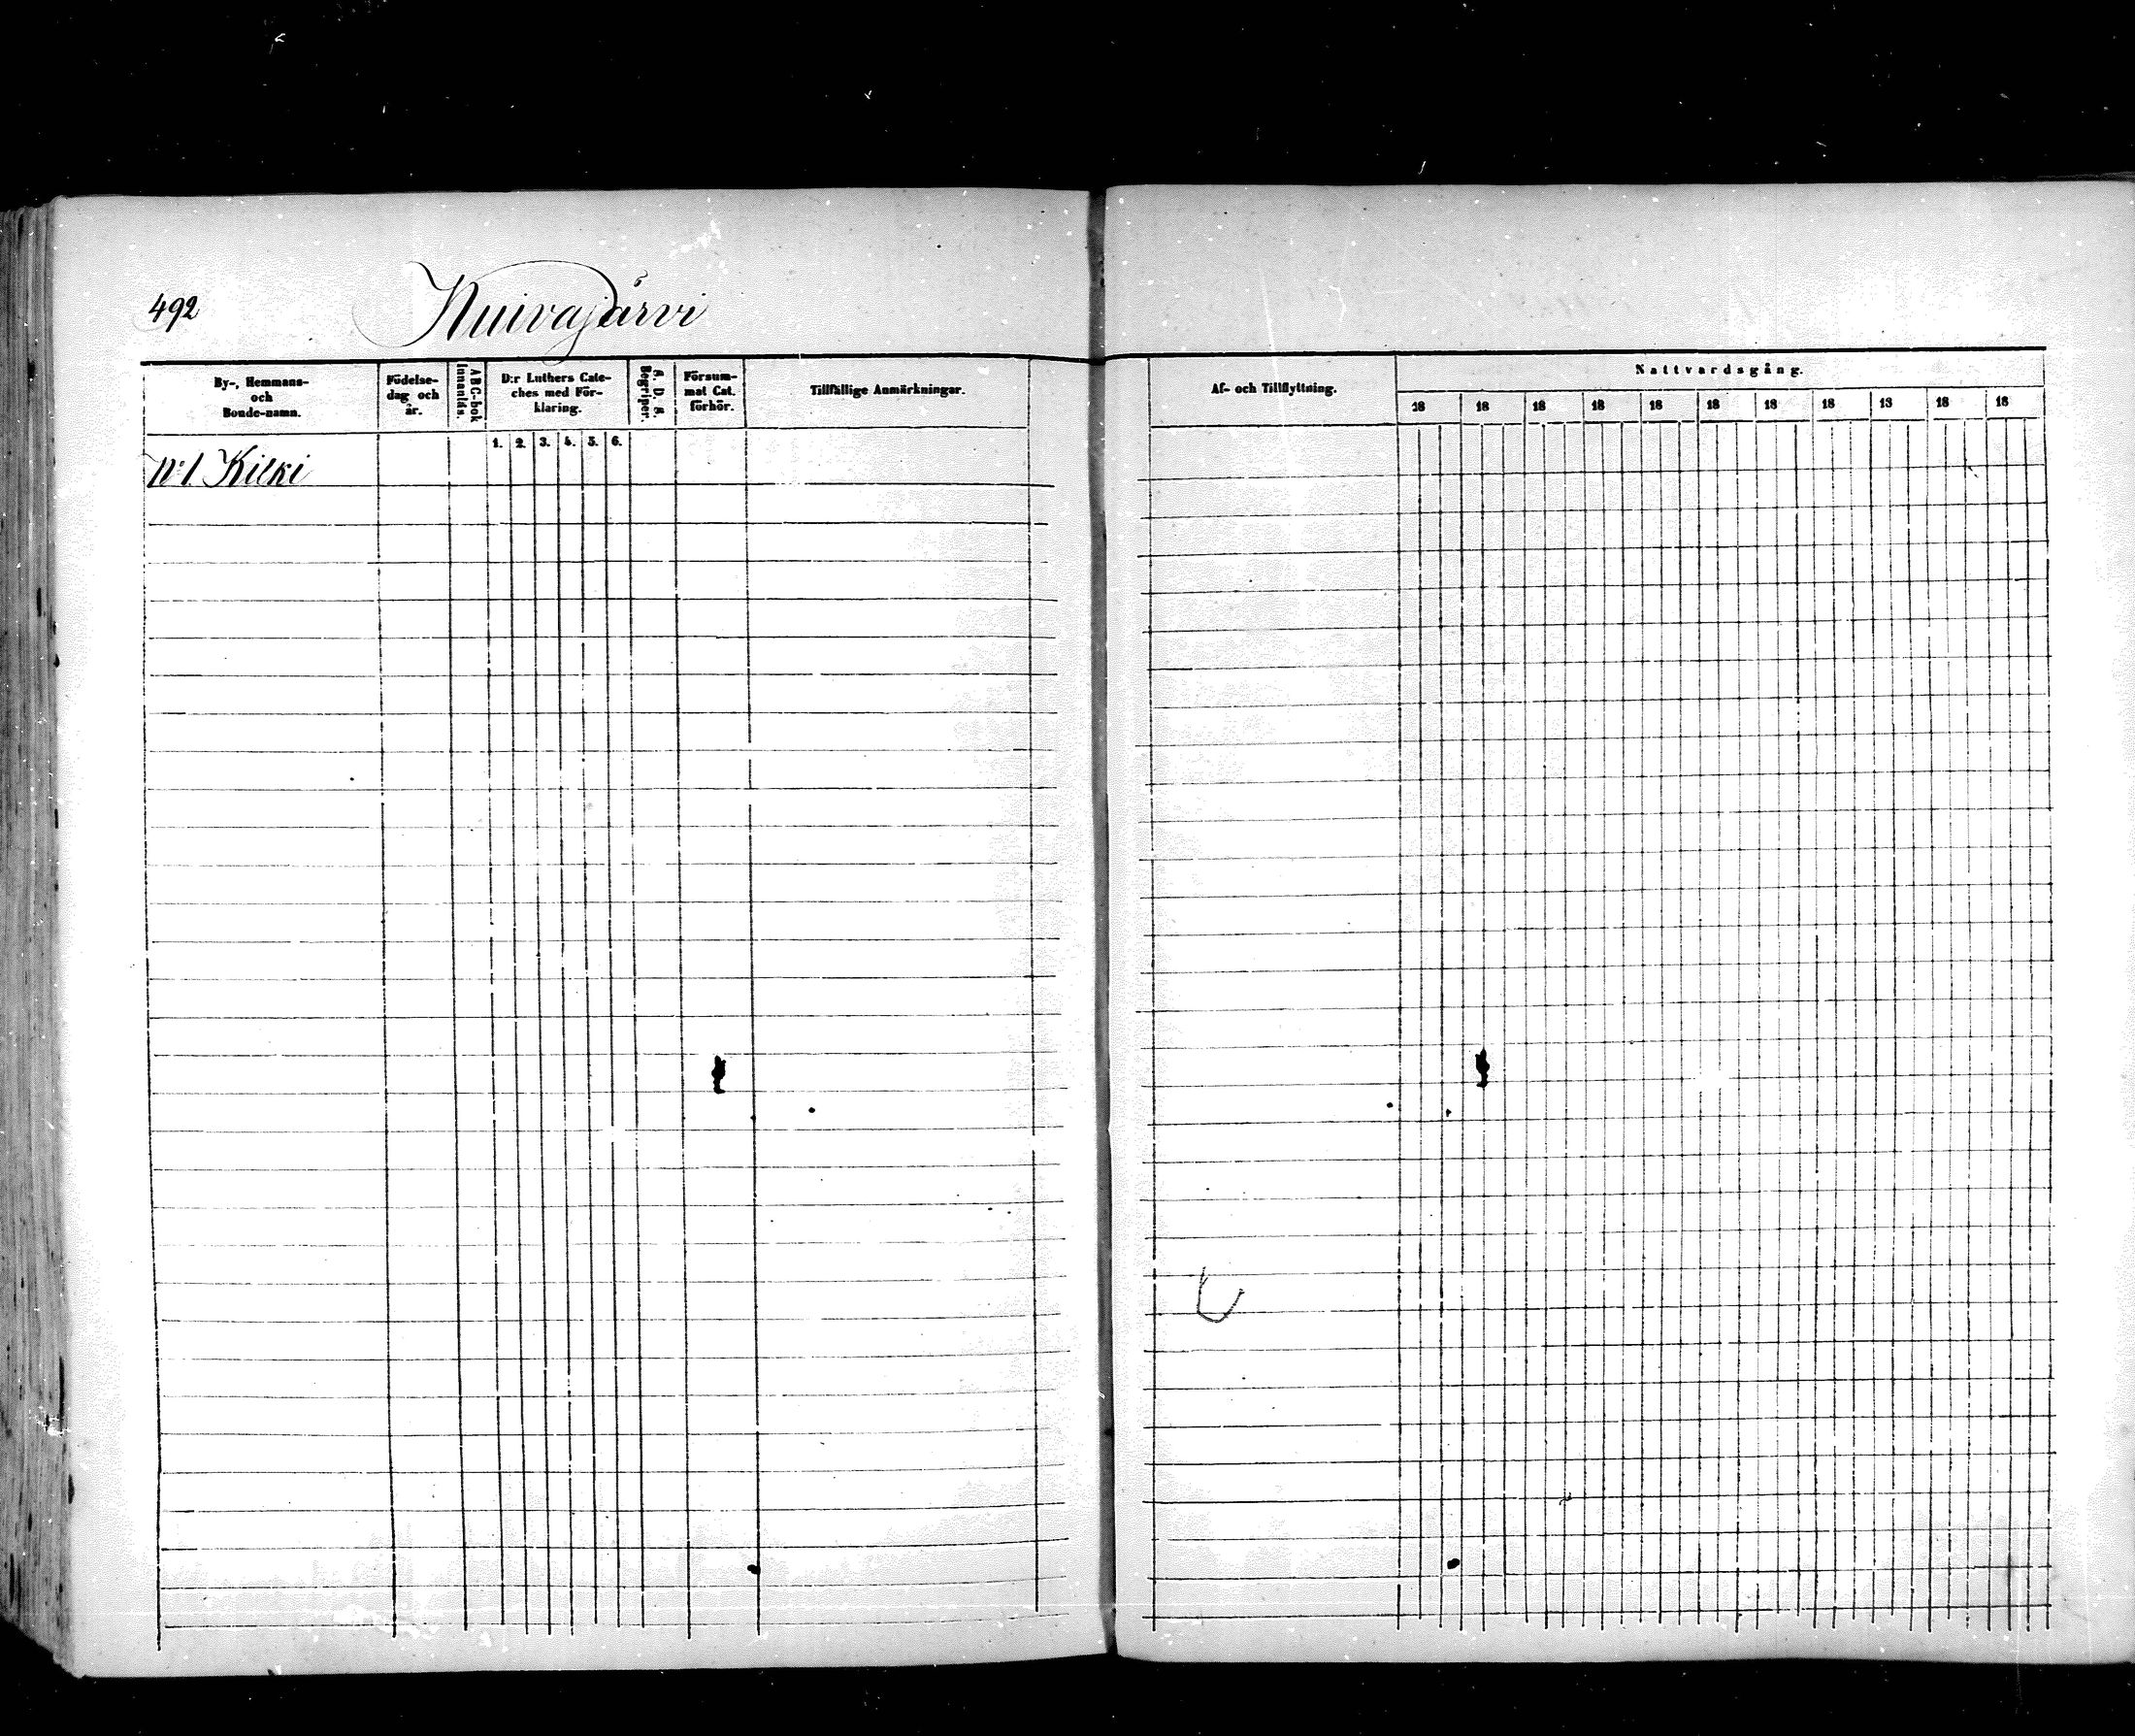 492
Kuivajärvi
By-, Hemmans-
och
Bonde-namn.
Födelse-
dag och
år.
ABC-bok
Innanläs.
D:r Luthers Cate-
ches med För-
klaring.
1. 2. 3. 4. 5. 6.
A. D. S.
Begriper.
Försum-
mat Cat.
förhör.
Tillfällige Anmärkningar.
Af- och Tillflyttning.
Nattvardsgång.
18 18 18 18 18 18 18 18 18 18 18
N:o 1 Kilki